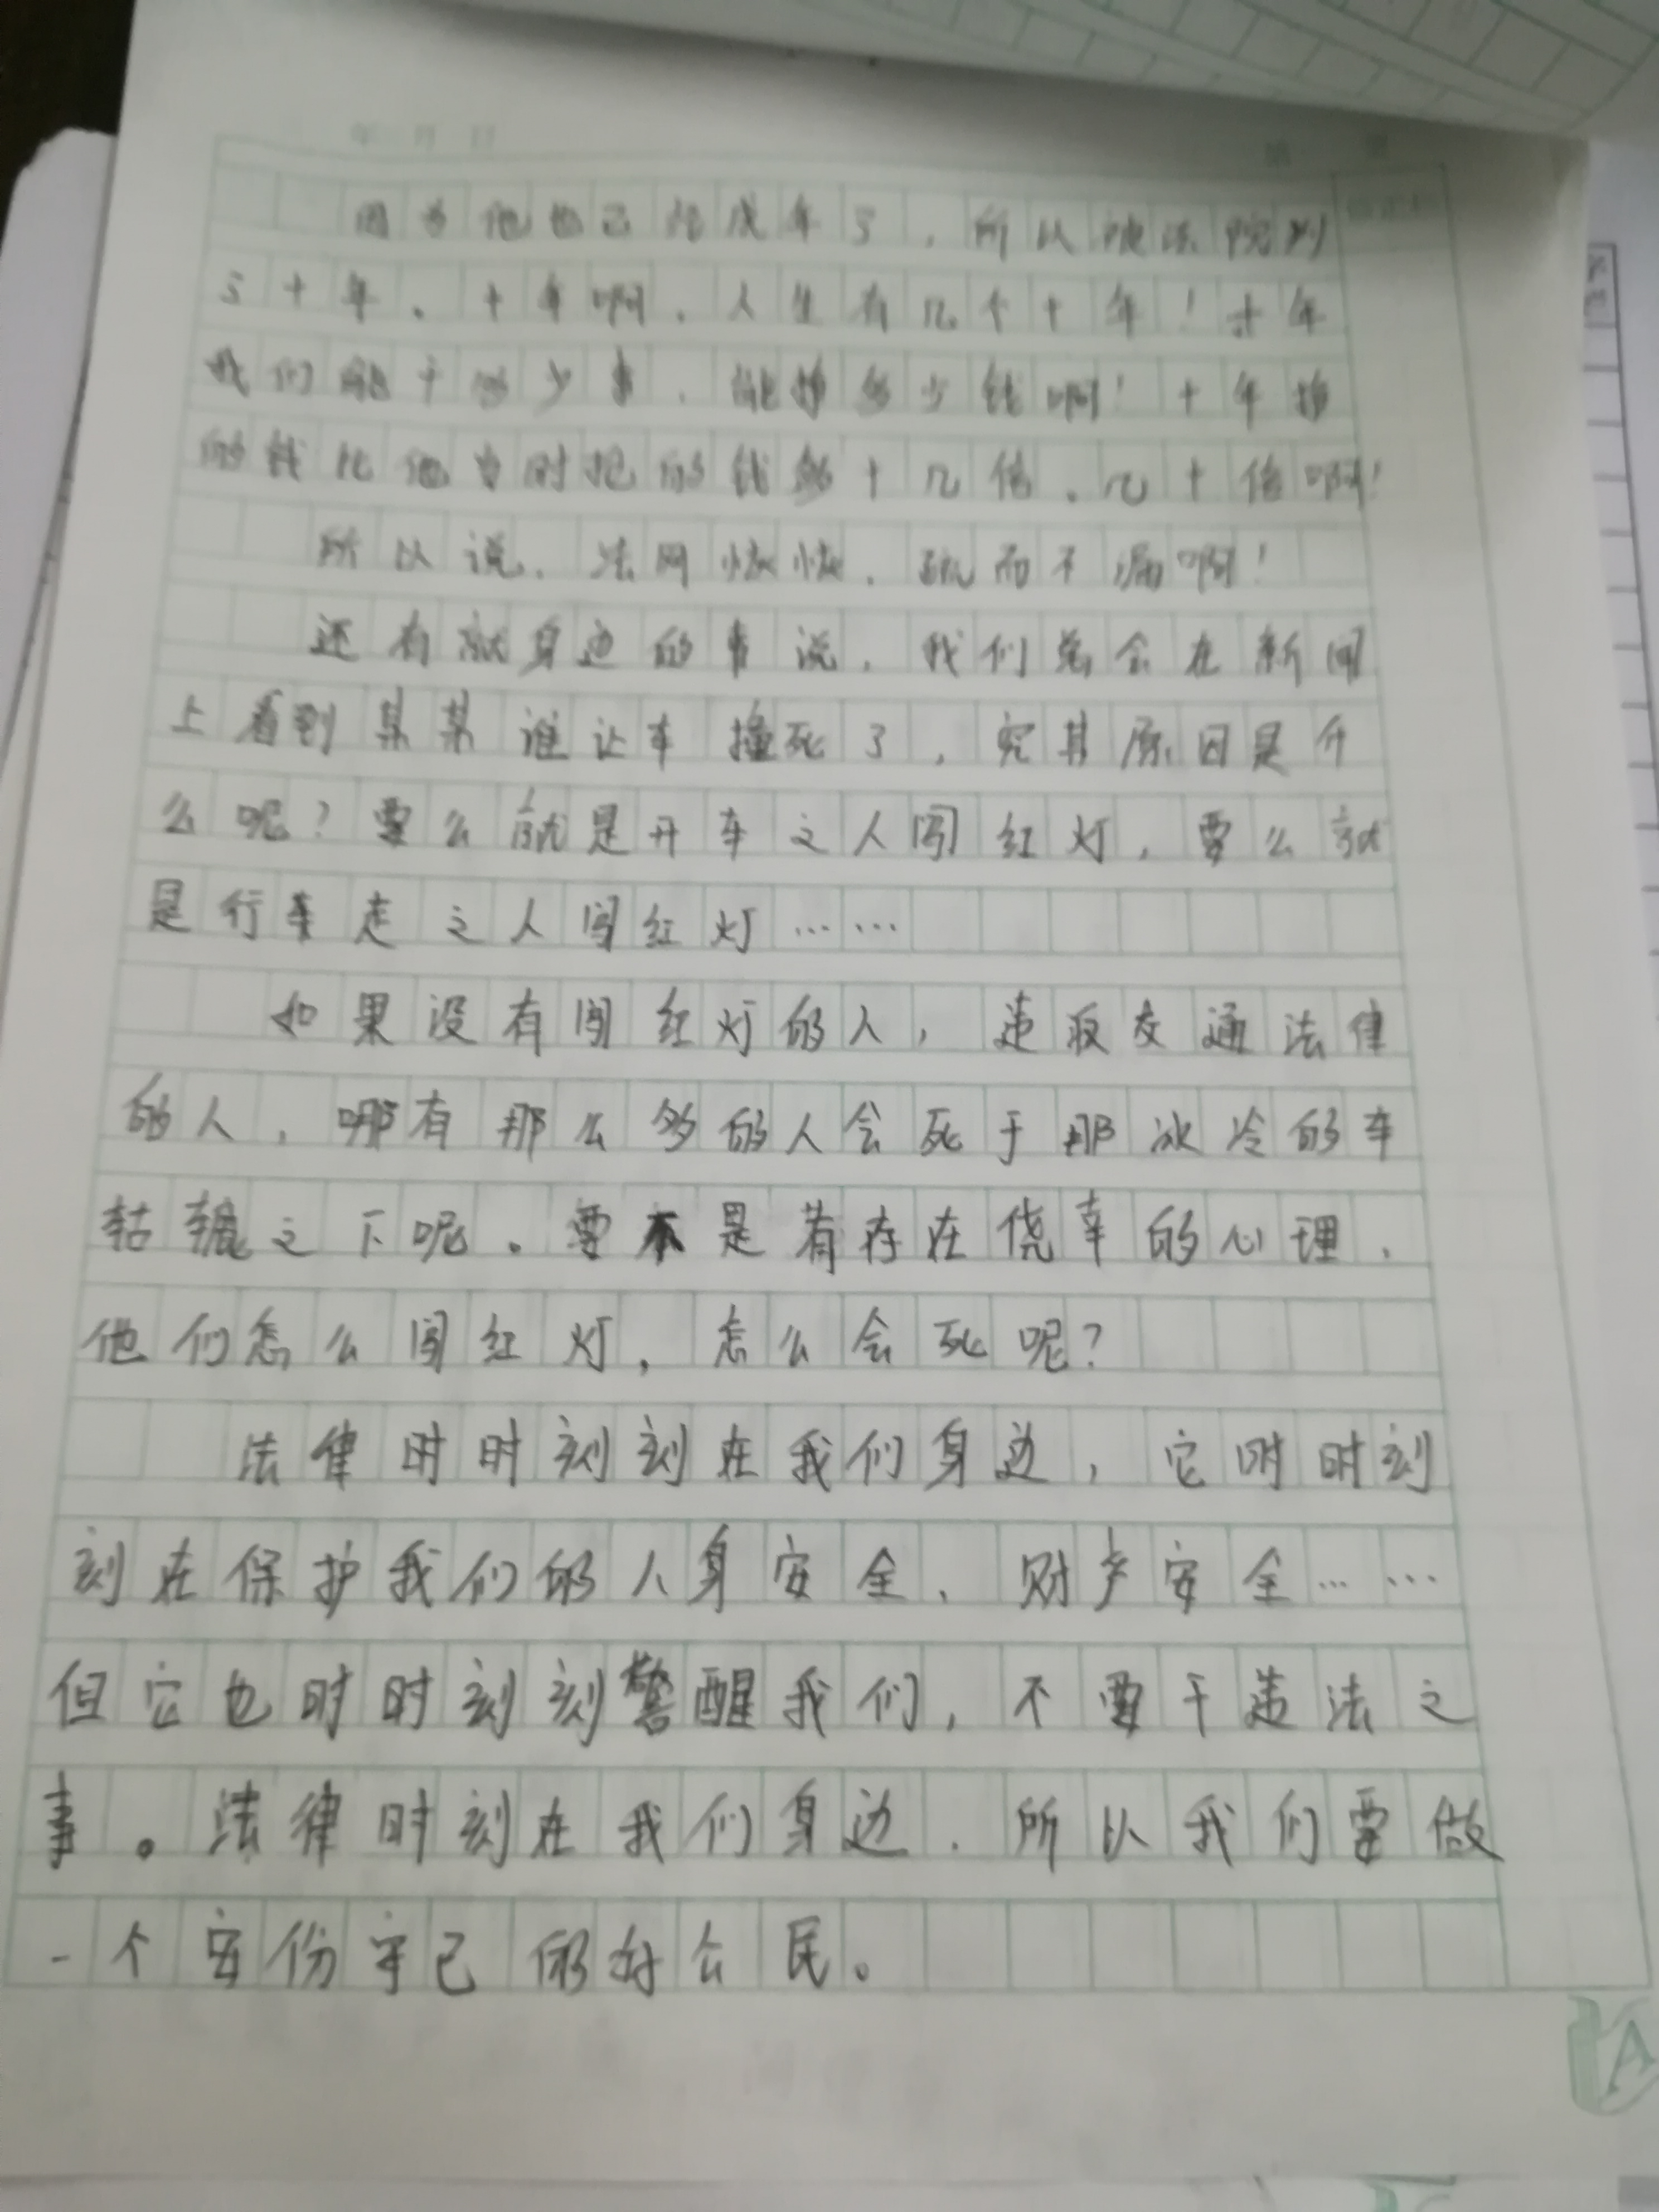 年 月 日
因为他也已经成年了，所以被法院判
了十年。十年啊，人生有几个十年！十年
我们能干多少事，能挣多少钱啊！十年挣
的钱比他当时抢的钱多十几倍、几十倍啊！
所以说，法网恢恢，疏而不漏啊！
还有就身边的事说，我们总会在新闻
上看到某某谁让车撞死了，究其原因是什
么呢？要么就是开车之人闯红灯，要么就
是行走之人闯红灯……
如果没有闯红灯的人，违反交通法律
的人，哪有那么多的人会死于那冰冷的车
轱辘之下呢。要不是有存在侥幸的心理，
他们怎么闯红灯，怎么会死呢？
法律时时刻刻在我们身边，它时时刻
刻在保护我们的人身安全、财产安全……
但它也时时刻刻警醒我们，不要干违法之
事。法律时刻在我们身边，所以我们要做
一个安份守己的好公民。